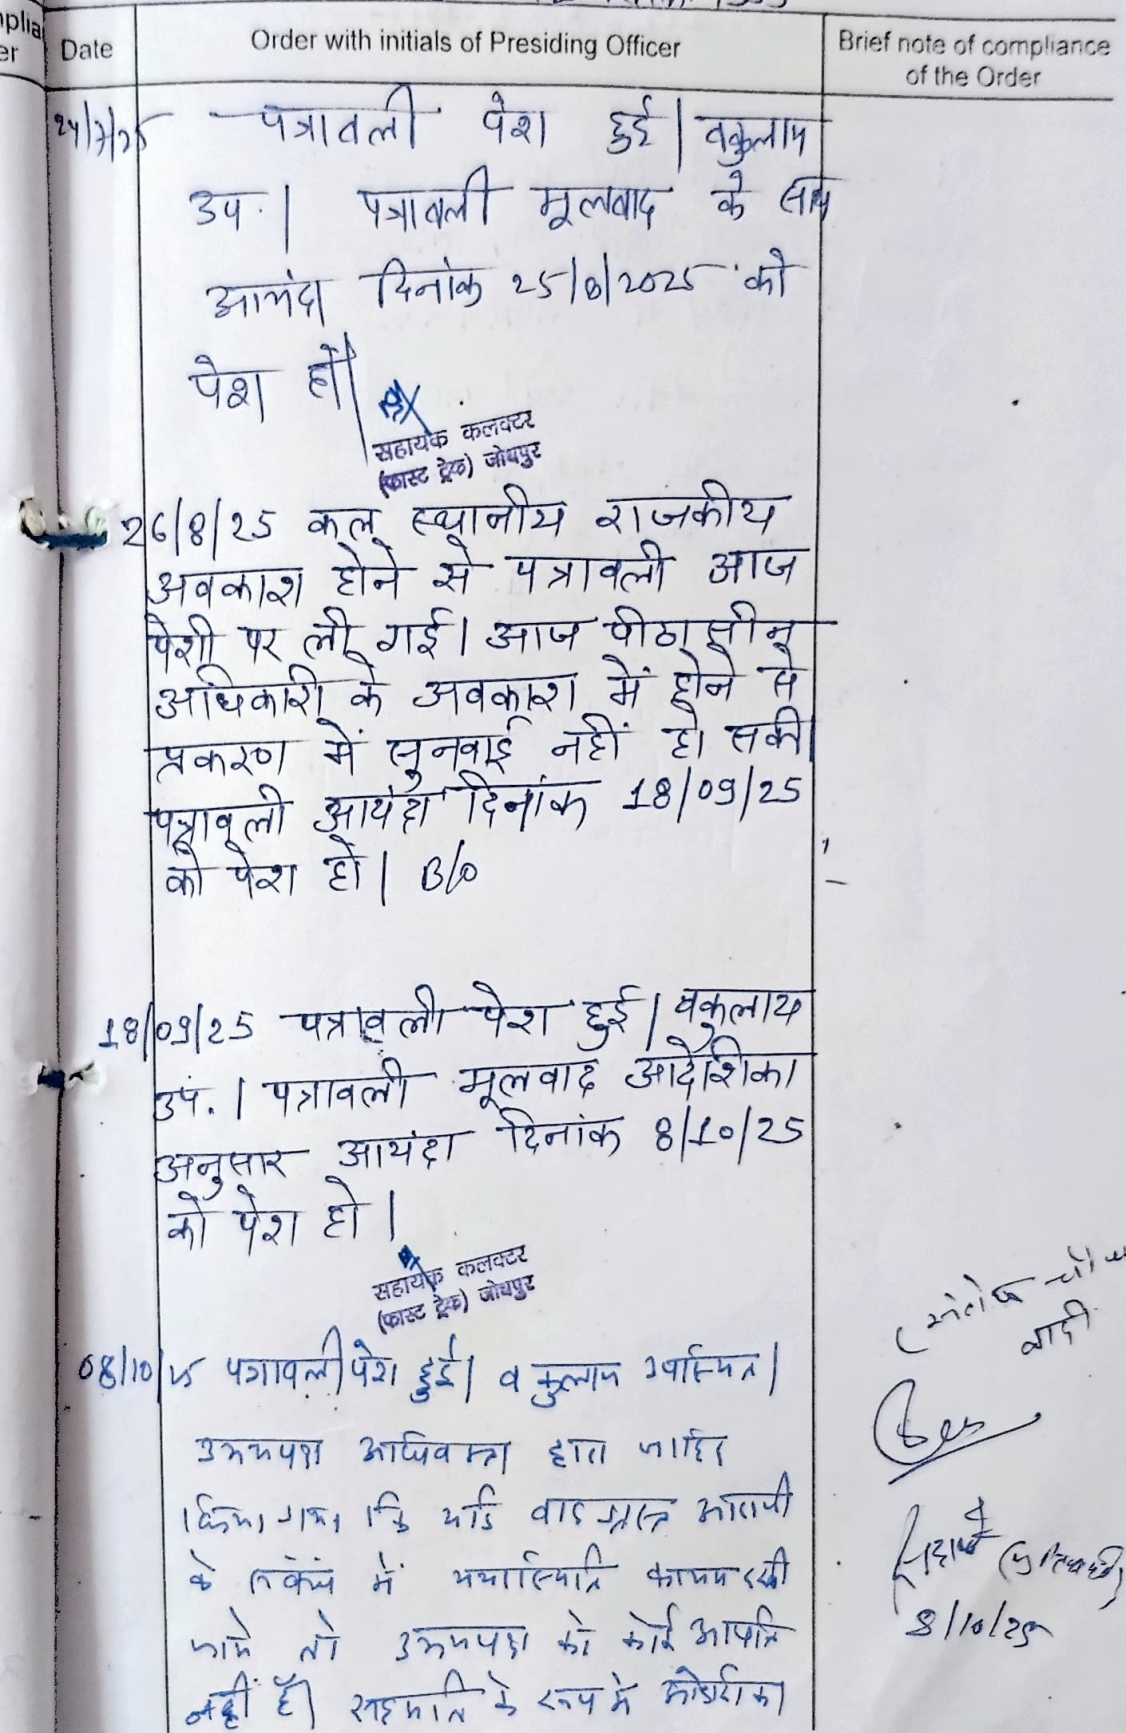 Date
Order with initials of Presiding Officer
Brief note of compliance
of the Order
24/7/25 पत्रावली पेश हुई | वकुलाय
उप. | पत्रावली मूलवाद के साथ
आयंदा दिनांक 25/8/2025 को
पेश हो |
सहायक कलक्टर
(फास्ट ट्रेक) जोधपुर
26/8/25 कल स्थानीय राजकीय
अवकाश होने से पत्रावली आज
पेशी पर ली गई | आज पीठासीन
अधिकारी के अवकाश में होने से
प्रकरण में सुनवाई नहीं हो सकी |
पत्रावली आयंदा दिनांक 18/09/25
को पेश हो | B/o
18/09/25 पत्रावली पेश हुई | वकुलाय
उप. | पत्रावली मूलवाद आदेशिका
अनुसार आयंदा दिनांक 8/10/25
को पेश हो |
सहायक कलक्टर
(फास्ट ट्रेक) जोधपुर
08/10/25 पत्रावली पेश हुई | वकुलाय उपस्थित |
उभयपक्ष अधिवक्ता द्वारा जाहिर
किया गया कि यदि वादग्रस्त आराजी
के संबंध में यथास्थिति कायम रखी
जाये तो उभयपक्ष को कोई आपत्ति
नहीं है | सहमति के रूप में
वादी
8/10/25